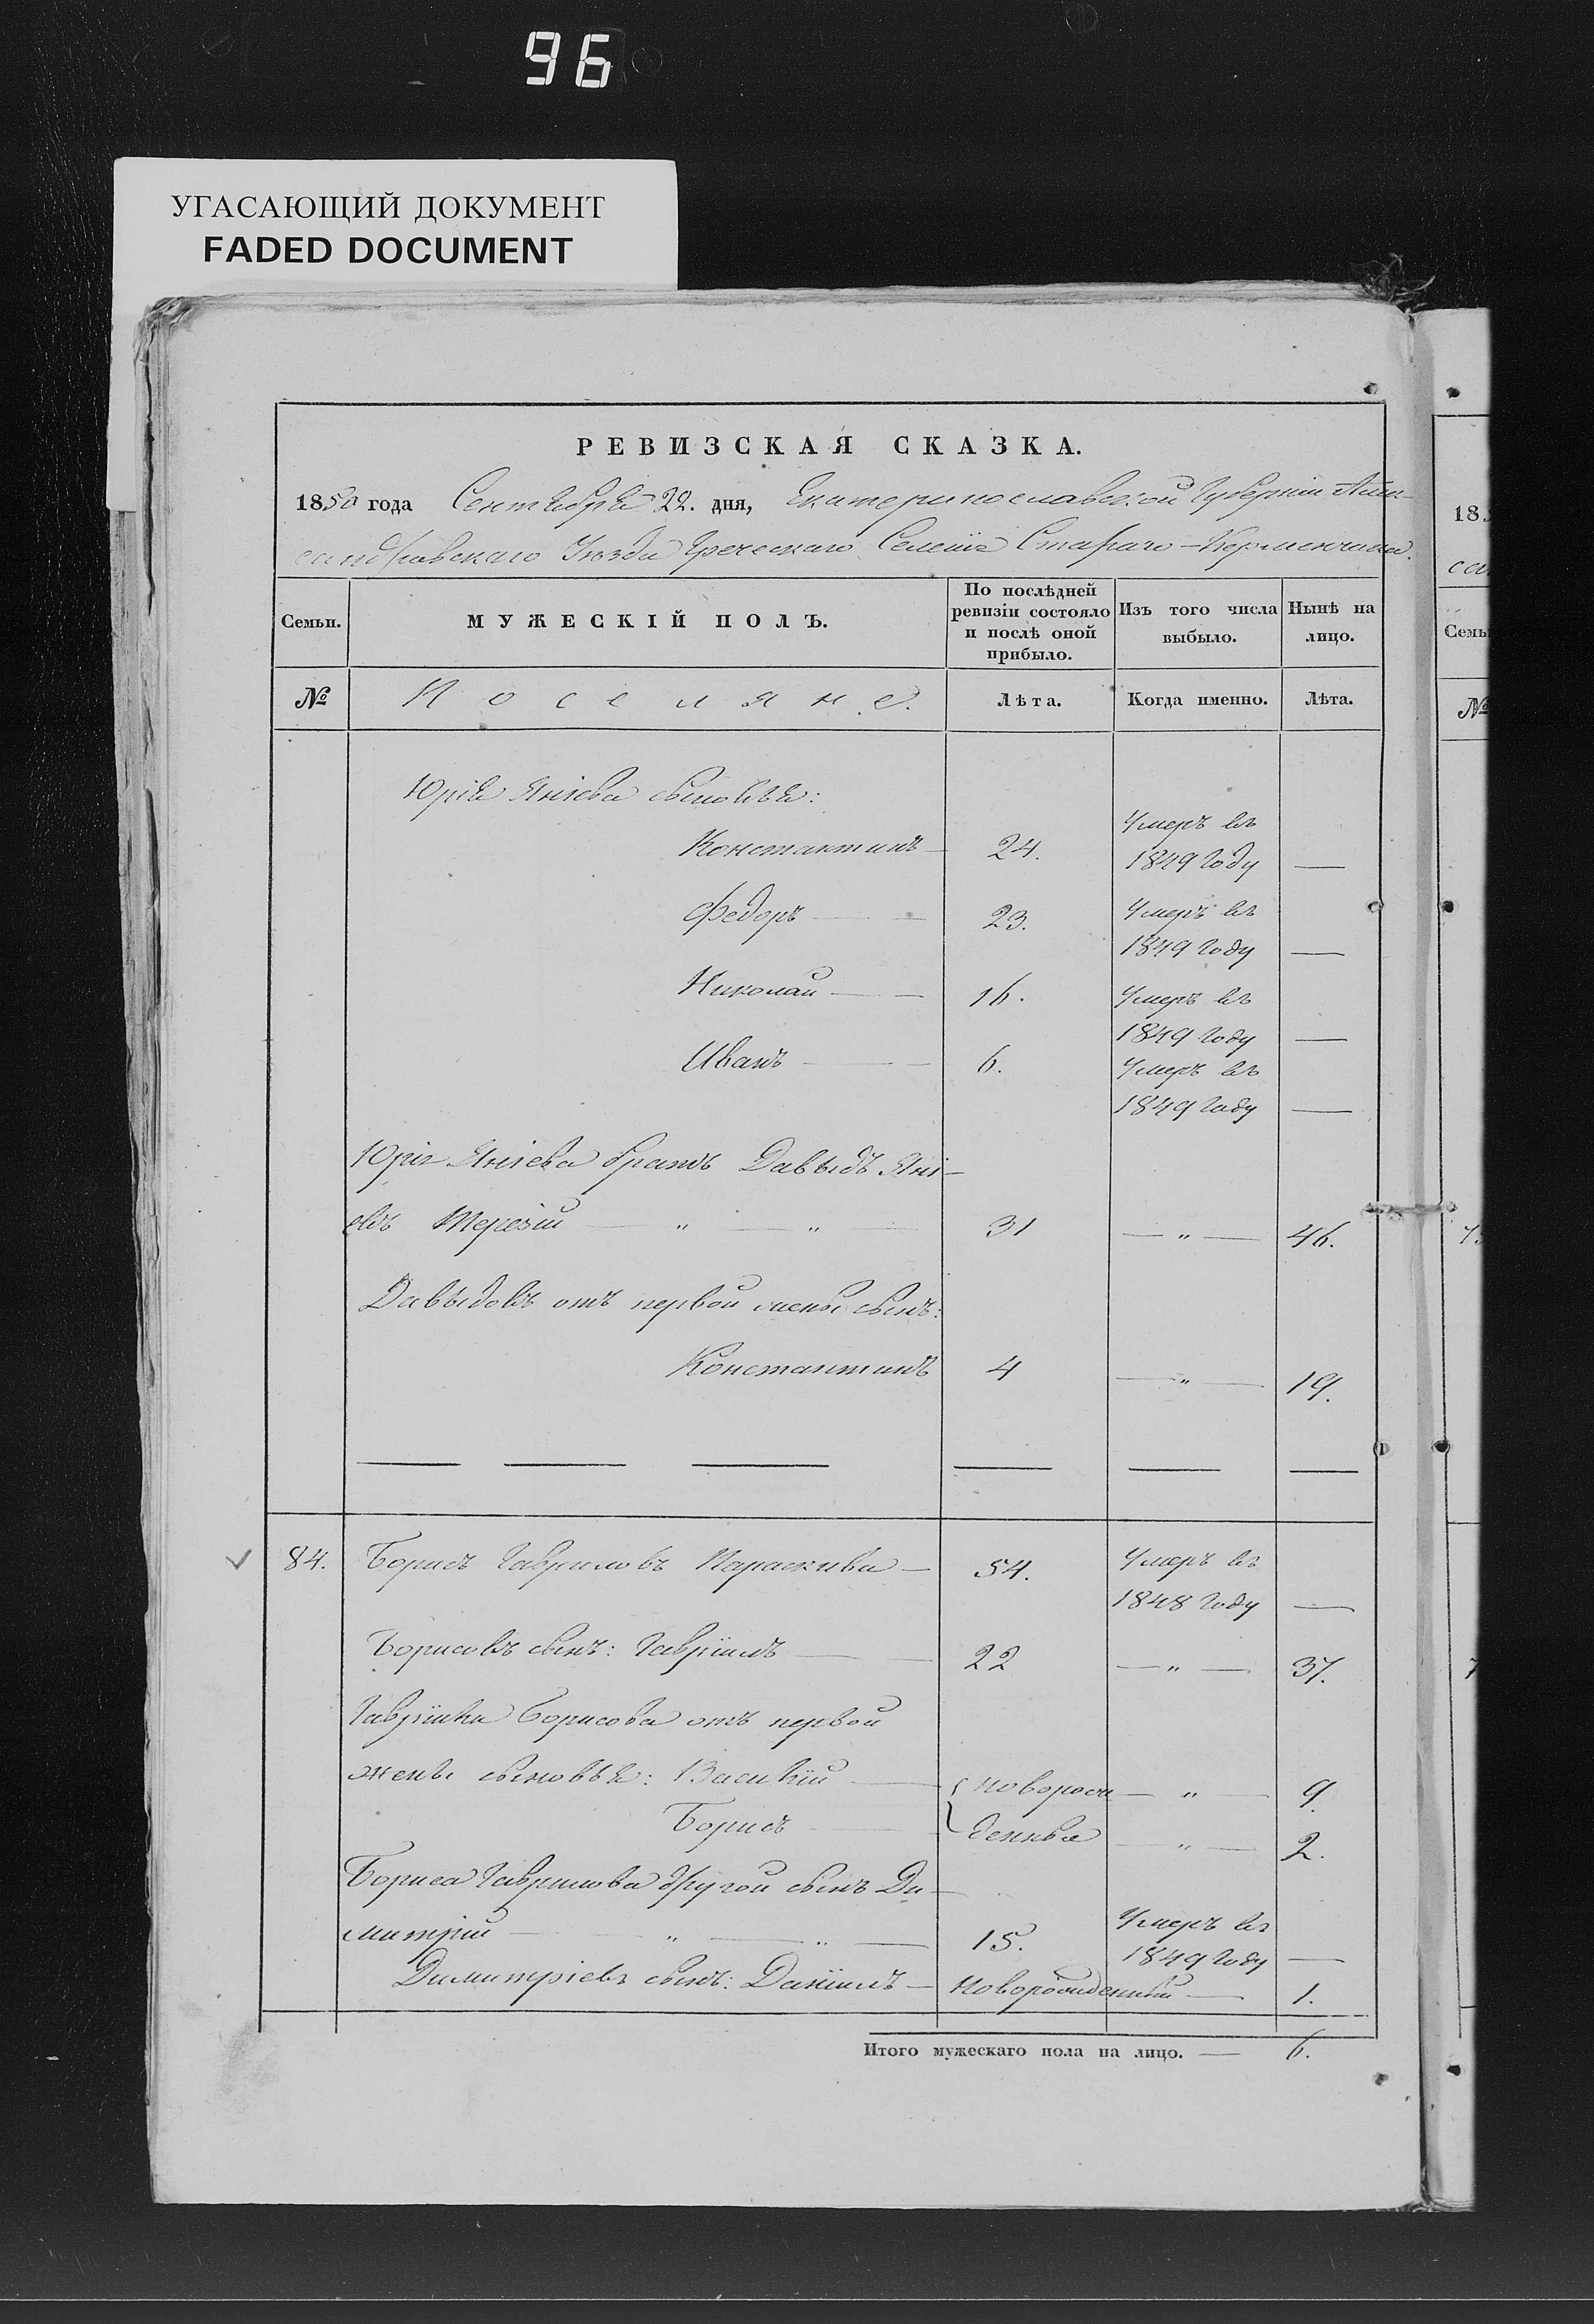 96
УГАСАЮЩИЙ ДОКУМЕНТ
FADED DOCUMENT
РЕВИЗСКАЯ СКАЗКА.
1850 года Сентября 22. дня, Екатеринославской Губернiи Алек-
сандровскаго Уѣзда Греческаго Селенiя Стараго-Керменчика.
Семьи.
МУЖЕСКІЙ ПОЛЪ.
По послѣдней ревизіи состояло и послѣ оной прибыло.
Изъ того числа выбыло.
Нынѣ на лицо.
№
Поселяне.
Лѣта.
Когда именно.
Лѣта.
Юрія Яніева сыновья:
Константинъ — 24. Умеръ въ
1849 году —
Федоръ — 23. Умеръ въ
1849 году —
Николай — 16. Умеръ въ
1849 году —
Иванъ — 6. Умеръ въ
1849 году —
Юрія Яніева братъ Давыдъ Яні-
евъ — " — " — 31 — " — 46.
Давыдовъ отъ первой жены сынъ:
Константинъ 4 — " — 19.
84. Борисъ Гавриловъ Параскива — 54. Умеръ въ
1848 году —
Борисовъ сынъ: Гавріилъ — 22 — " — 37.
Гавріила Борисова отъ первой
жены сыновья: Василій — новорож — " — 9.
Борисъ — денныя — " — 2.
Бориса Гаврилова другой сынъ Ди-
митрій — " — " — 15. Умеръ въ
1849 году —
Димитріевъ сынъ: Даніилъ — новорожденный — 1.
Итого мужескаго пола на лицо. — 6.
18
Семь
№